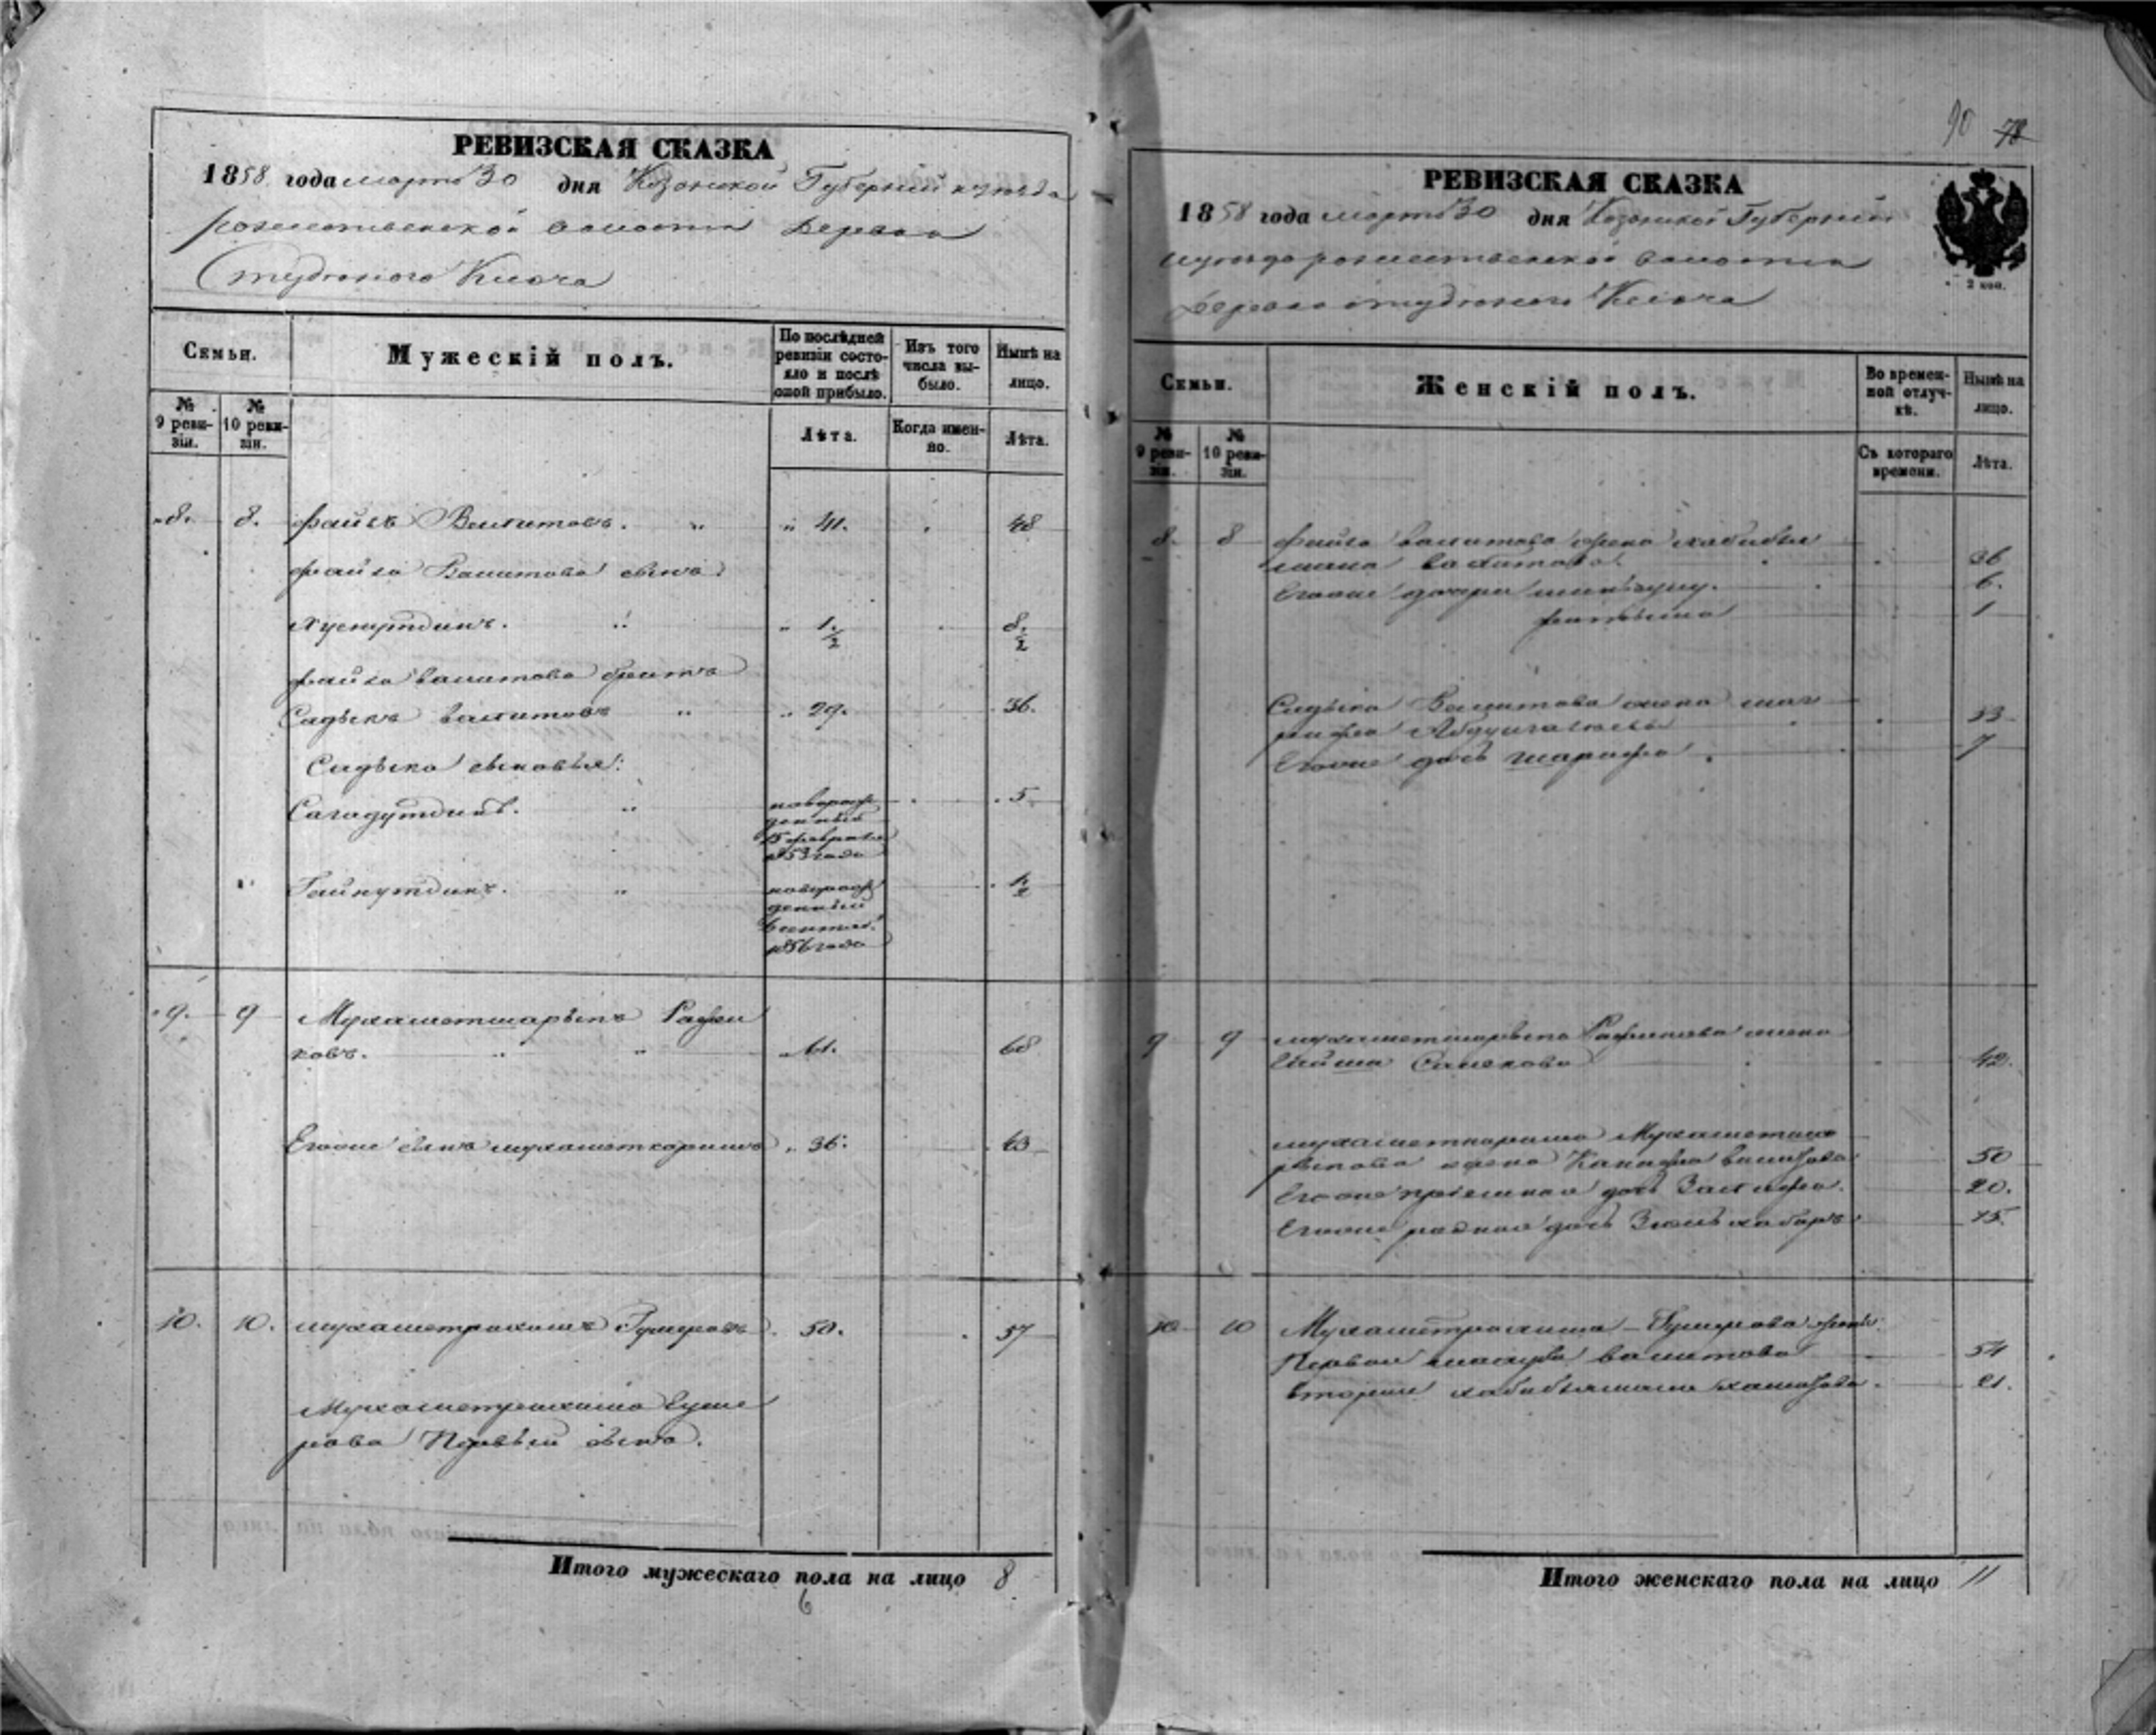 РЕВИЗСКАЯ СКАЗКА
1858 года марта 30 дня Казанской Губернии и уезда
рожественской волости Деревни
Студеного Ключа
Семьи.
Мужескій полъ.
По послѣдней ревизіи состояло и послѣ оной прибыло.
Изъ того числа выбыло.
Нынѣ на лицо.
№ 9 ревизіи.
№ 10 ревизіи.
Лѣта.
Когда именно.
Лѣта.
8. 8. Файзъ Валитовъ. 41. 48
Файза Валитова сынъ
Хуснутдинъ. 1 1/2 8 1/2
Файза валитова братъ
Садыкъ валитовъ 29. 36.
Садыка сыновья:
Сагадутдинъ. новорожденный 15 февраля 1853 года 5
Гайнутдинъ. новорожденный 1856 года 1 1/2
9. 9 Мухаметшарыпъ Рафи
ковъ. 61. 68
Егоже сынъ мухаметкаримъ 36. 43
10. 10. мухаметрахимъ Гумеровъ 50. 57
Мухаметрахима Гуме
рова Первый сынъ.
Итого мужескаго пола на лицо 8
6
90 78
РЕВИЗСКАЯ СКАЗКА
1858 года марта 30 дня Казанской Губернии
и уезда рожественской волости
Деревни студеного Ключа
2 коп.
Семьи.
Женскій полъ.
Во временной отлучкѣ.
Нынѣ на лицо.
№ 9 ревизіи.
№ 10 ревизіи.
Съ котораго времени.
Лѣта.
8. 8 Файза валитова жена хабибза
мала валитова. 36
Егоже дочери 6.
1
Садыка Валитова жена
33
Егоже дочь шарифа 7
9 9 мухаметшарыпа Рафикова жена
Гайша Салекова 42.
мухаметкарима Мухаметша
рыпова жена Ханифа 50
Егоже приемная дочь Залифа. 20.
Егоже родная дочь 15
10 10 Мухаметрахима Гумерова жены:
Первая валитова 54
вторая 21.
Итого женскаго пола на лицо 11